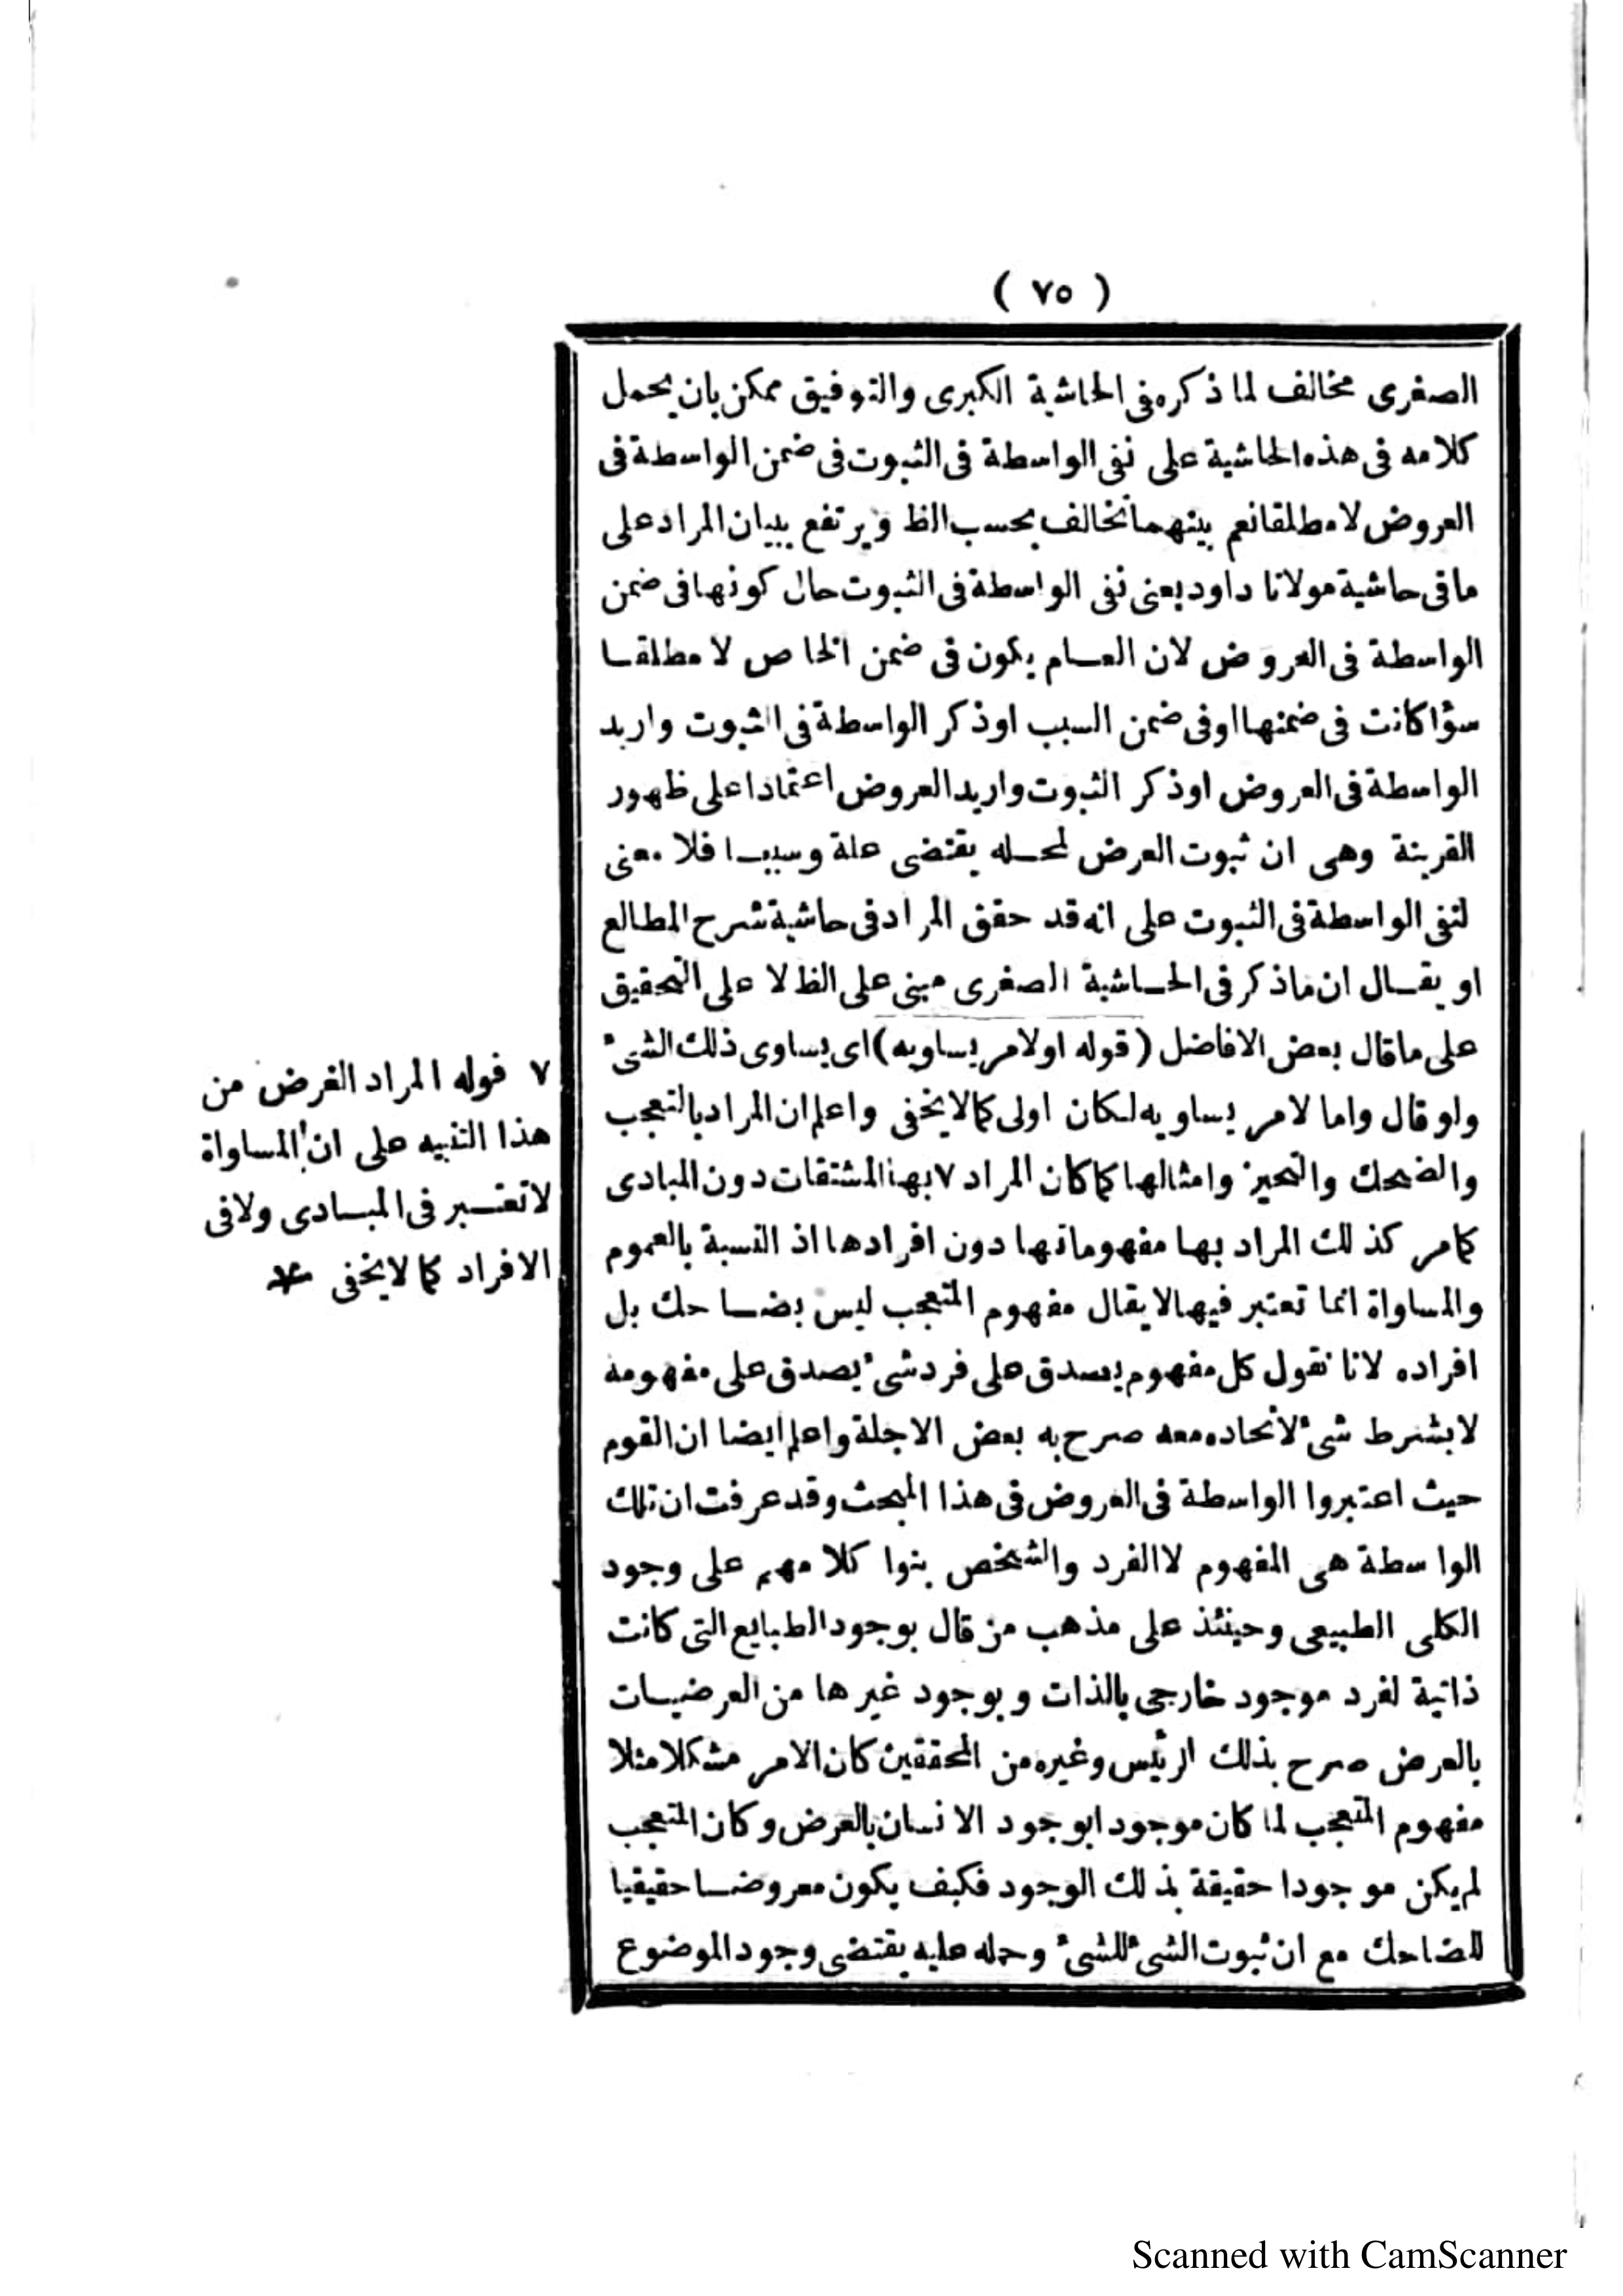 ( ٧٥ )
الصغرى مخالف لما ذكره فى الحاشية الكبرى والتوفيق ممكن بان يحمل
كلامه فى هذه الحاشية على نفى الواسطة فى الثبوت فى ضمن الواسطة فى
العروض لا مطلقا نعم بينهما تخالف بحسب الظ ويرتفع ببيان المراد على
ما فى حاشية مولانا داود يعنى نفى الواسطة فى الثبوت حال كونها فى ضمن
الواسطة فى العروض لان العام يكون فى ضمن الخاص لا مطلقا
سؤا كانت فى ضمنها او فى ضمن السبب او ذكر الواسطة فى الثبوت واريد
الواسطة فى العروض او ذكر الثبوت واريد العروض اعتمادا على ظهور
القرينة وهى ان ثبوت العرض لمحله يقتضى علة وسببا فلا معنى
لنفى الواسطة فى الثبوت على انه قد حقق المراد فى حاشية شرح المطالع
او يقال ان ما ذكر فى الحاشية الصغرى مبنى على الظ لا على التحقيق
على ما قال بعض الافاضل (قوله او لامر يساويه) اى يساوى ذلك الشئ
ولو قال واما لامر يساويه لكان اولى كما لا يخفى واعلم ان المراد بالتعجب
والضحك والتحيز وامثالها كما كان المراد ٧ بها المشتقات دون المبادى
كما مر كذلك المراد بها مفهوماتها دون افرادها اذ النسبة بالعموم
والمساواة انما تعتبر فيها لا يقال مفهوم المتعجب ليس بضاحك بل
افراده لانا نقول كل مفهوم يصدق على فرد شئ يصدق على مفهومه
لا بشرط شئ لاتحاده معه صرح به بعض الاجلة واعلم ايضا ان القوم
حيث اعتبروا الواسطة فى العروض فى هذا المبحث وقد عرفت ان تلك
الواسطة هى المفهوم لا الفرد والشخص بنوا كلامهم على وجود
الكلى الطبيعى وحينئذ على مذهب من قال بوجود الطبايع التى كانت
ذاتية لفرد موجود خارجى بالذات وبوجود غيرها من العرضيات
بالعرض صرح بذلك الرئيس وغيره من المحققين كان الامر مشكلا مثلا
مفهوم المتعجب لما كان موجودا بوجود الانسان بالعرض وكان المتعجب
لم يكن موجودا حقيقة بذلك الوجود فكيف يكون معروضا حقيقيا
للضاحك مع ان ثبوت الشئ للشئ وحمله عليه يقتضى وجود الموضوع
٧ قوله المراد الغرض من
هذا التنبيه على ان المساواة
لا تعتبر فى المبادى ولا فى
الافراد كما لا يخفى
Scanned with CamScanner